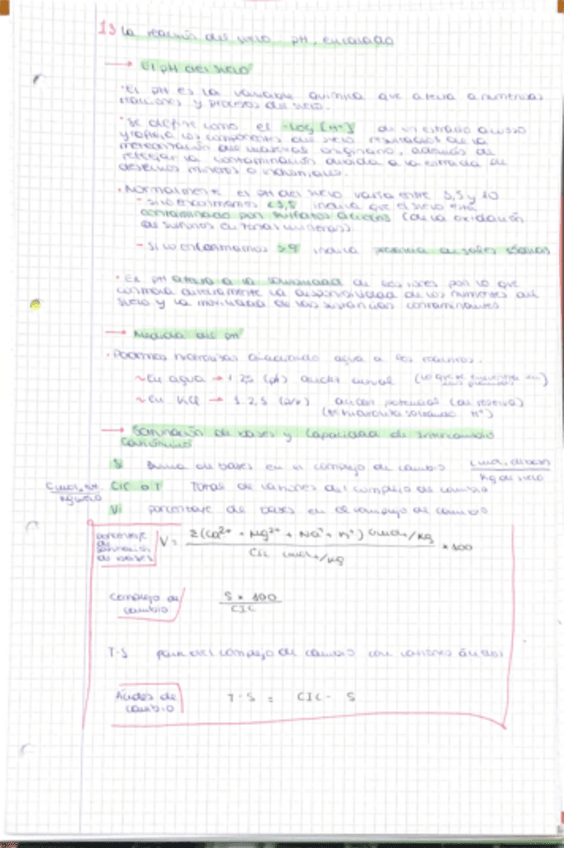 13 La reacción del suelo. pH, encalado
→ El pH del suelo
· El pH es la variable química que afecta a numerosas
reacciones y procesos del suelo.
· Se define como el -log [H+] de un extracto acuoso
y refleja los componentes del suelo resultados de la
meteorización del material originario, además de
reflejar la contaminación debida a la entrada de
desechos mineros o industriales.
· Normalmente el pH del suelo varía entre 3,5 y 10
- si lo encontramos <3,5 indica que el suelo está
contaminado por sulfatos ácidos (de la oxidación
de sulfuros en zonas mineras).
- Si lo encontramos >9 indica presencia de sales sódicas
· El pH afecta a la solubilidad de los iones por lo que
controla directamente la disponibilidad de los nutrientes del
suelo y la movilidad de las sustancias contaminantes
→ Medida del pH
· Podemos hacerlas añadiendo agua a los reactivos.
~ En agua → 1:2,5 (p/v) acidez actual
~ En KCl → 1:2,5 (p/v) acidez potencial (de reserva)
→ Saturación de bases y Capacidad de Intercambio
Catiónico
S: Suma de bases en el complejo de cambio
Kg de suelo
CIC o T: Total de cationes del complejo de cambio
V: porcentaje de bases en el complejo de cambio
porcentaje de saturación de bases
V = Σ(Ca2+ + Mg2+ + Na+ + K+) cmol+/kg / CIC cmol+/kg × 100
Complejo de cambio
S × 100 / CIC
T-S parte del complejo de cambio con cationes ácidos
Ácidos de cambio
T-S = CIC - S